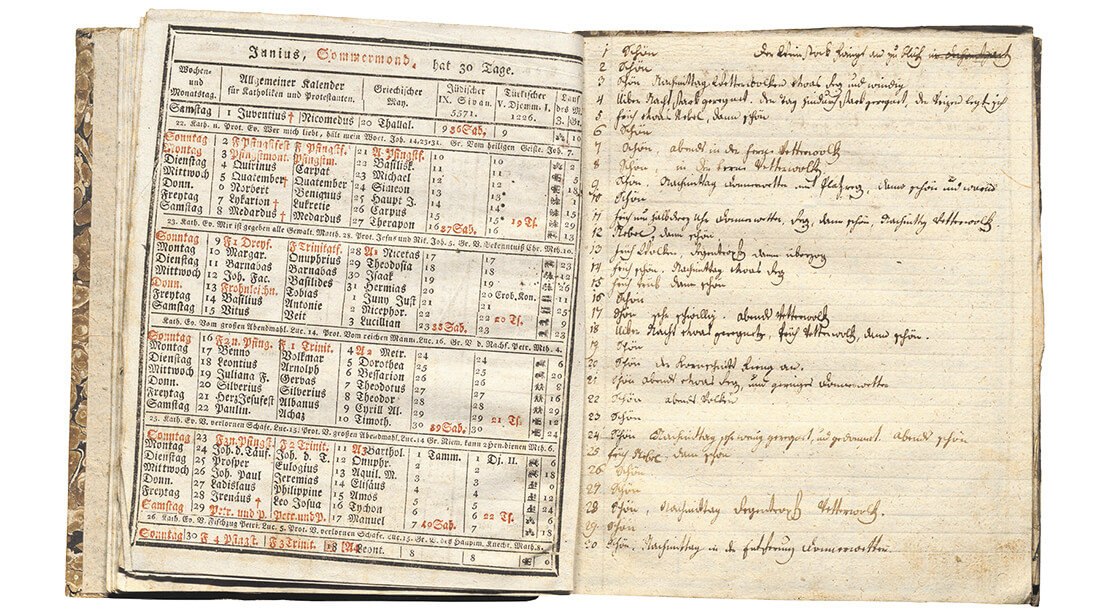 Junius, Sommermond, hat 30 Tage.
Wochen- und Monatstag. Allgemeiner Kalender für Katholiken und Protestanten. Griechischer May. Jüdischer IX. Sivan. 5571. Türkischer V. Djemm. I. 1226. Lauf des M.
Samstag 1 Juventius † Nicomedus 20 Thallal. 9 36 Sab.
22. Kath. u. Prot. Ev. Wer mich liebt, hält mein Wort. Joh. 14, 23-31. Gr. Vom heiligen Geiste. Joh. 7.
Sonntag 2 F Pfingstfest F Pfingstf. 21 A. Pfingstf. 10
Montag 3 Pfingstmont. Pfingstm. 22 Basilisk. 11
Dienstag 4 Quirinus Carpat 23 Michael 12
Mittwoch 5 Quatember † Quatember 24 Simeon 13
Donn. 6 Norbert Benignus 25 Haupt J. 14
Freytag 7 Lykarion † Lukretie 26 Carpus 15
Samstag 8 Medardus † Medardus 27 Therapon 16 37 Sab. 19 Ts.
23. Kath. Ev. Mir ist gegeben alle Gewalt. Matth. 28. Prot. Jesus und Nik. Joh. 3. Gr. V. Bekenntniß Chr. Mth. 10.
Sonntag 9 F 1 Dreyf. F Trinitatf. 28 A 1 Nicetas 17 17
Montag 10 Margar. Onuphrius 29 Theodosia 18 18
Dienstag 11 Barnabas Barnabas 30 Isaak 19
Mittwoch 12 Joh. Fac. Basilides 31 Hermias 20
Donn. 13 Frohnleichn. Tobias 1 Juny Just 21 20 Erob. Kon.
Freytag 14 Basilius Antonie 2 Nicephor. 22
Samstag 15 Vitus Veit 3 Lucillian 23 38 Sab. 20 Ts.
Kath. Ev. Vom großen Abendmahl. Luc. 14. Prot. Vom reichen Mann. Luc. 16. Gr. V. d. Nachf. Petr. Mth. 4.
Sonntag 16 F 2 n. Pfing. F 1 Trinit. 4 A 2 Metr. 24 24
Montag 17 Benno Volkmar 5 Dorothea 25 25
Dienstag 18 Leontius Arnolph 6 Bessarion 26 26
Mittwoch 19 Juliana F. Gervas 7 Theodotus 27 27
Donn. 20 Silverius Silverius 8 Theodor 28 28
Freytag 21 Herz Jesufest Albanus 9 Cyrill Al. 29 29
Samstag 22 Paulin. Achaz 10 Timoth. 30 39 Sab. 21 Ts.
Kath. Ev. V. verlornen Schafe. Luc. 15. Prot. V. großen Abendmahl. Luc. 14 Gr. Niem. kann 2 Hen. dienen Mth. 6.
Sonntag 23 F 3 n. Pfingst. F 2 Trinit. 11 A 3 Barthol. 1 Tamm. 1 Dj. II.
Montag 24 Joh. d. Täuf. Joh. d. T. 12 Onuphr. 2 2
Dienstag 25 Prosper Eulogius 13 Aquil. M. 3 3
Mittwoch 26 Joh. Paul Jeremias 14 Elisäus 4 4
Donn. 27 Ladislaus Philippine 15 Amos 5 5
Freytag 28 Irenäus † Leo Josua 16 Tychon 6 6
Samstag 29 Petr. und P. Petr. und P. 17 Manuel 7 40 Sab. 22 Ts.
26. Kath. Ev. V. Fischzug Petri. Luc. 5. Prot. V. verlornen Schafe. Luc. 15. Gr. V. des Hauptm. Knecht. Math. 8.
Sonntag 30 F 4 Pfingst. F 3 Trinit. 18 A 4 Leont. 8 8
1 Schön
2 Schön
3 Schön, Nachmittag etwas Reg und windig
4 Ueber Nacht stark geregnet, den Tag hindurch stark geregnet
5 früh etwas Nebel, dann schön
6 Schön
7 Schön, abends in der ferne Wetterwolk
8 Schön, in der ferne Wetterwolk
9 Schön, Nachmittag donnerwetter mit Platzreg, dann schön und warm
10 Schön
11 donnerwetter, Reg, dann schön, Nachmittag Wetterwolk
12 Nebel, dann schön
13 früh
14 früh schön, Nachmittag etwas Reg
15 früh trüb dann schön
16 Schön
17 Schön sehr schwillig, abends Wetterwolk
18 Ueber Nacht etwas geregnet, früh Wetterwolk, dann schön.
19 Schön
20 Schön der Kornschnitt fieng an.
21 Schön abends etwas Reg, und geringes donnerwetter
22 Schön abends Wolken
23 Schön
24 Schön Nachmittag sehr wenig geregnet, und gedonnert. Abends schön
25 früh Nebel, dann schön
26 Schön
27 Schön
28 Schön, Nachmittag Wetterwolk.
29 Schön
30 Schön, Nachmittag in der Entfernung donnerwetter